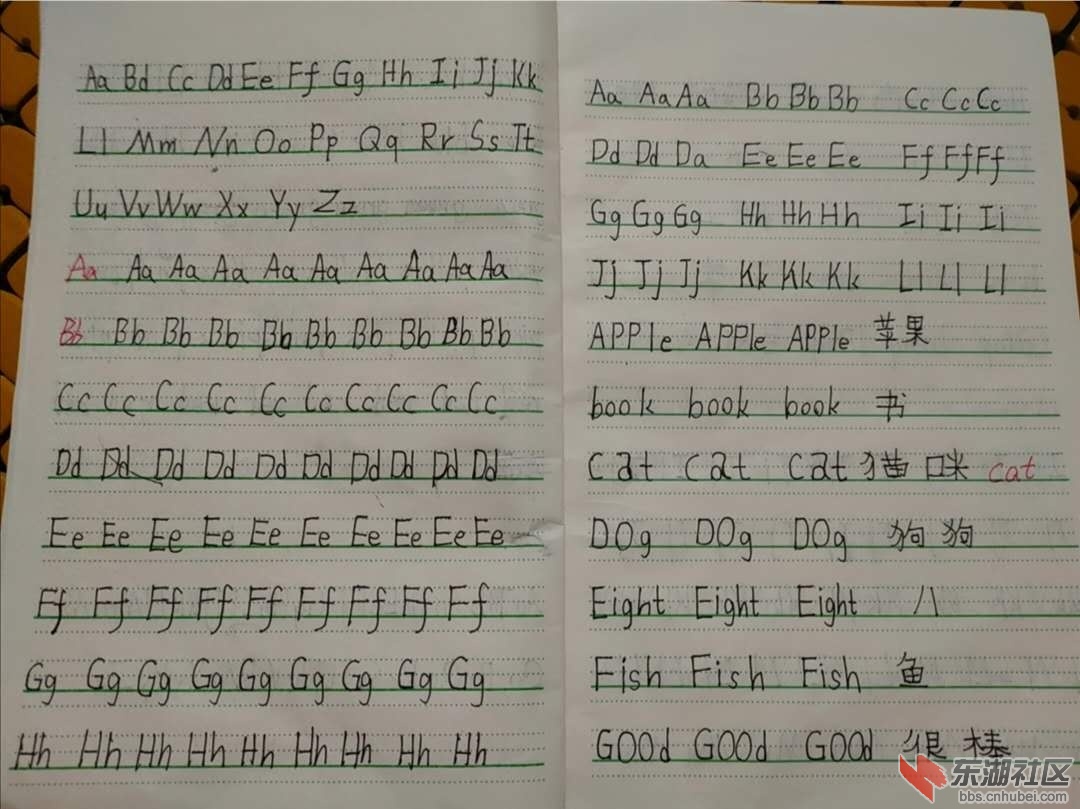 Aa Bd Cc Dd Ee Ff Gg Hh Ii Jj Kk
Ll Mm Nn Oo Pp Qq Rr Ss Tt
Uu Vv Ww Xx Yy Zz
Aa Aa Aa Aa Aa Aa Aa Aa Aa Aa
Bb Bb Bb Bb Bb Bb Bb Bb Bb Bb
Cc Cc Cc Cc Cc Cc Cc Cc Cc Cc
Dd Dd Dd Dd Dd Dd Dd Dd Dd Dd
Ee Ee Ee Ee Ee Ee Ee Ee Ee Ee
Ff Ff Ff Ff Ff Ff Ff Ff Ff
Gg Gg Gg Gg Gg Gg Gg Gg Gg
Hh Hh Hh Hh Hh Hh Hh Hh Hh
Aa Aa Aa Bb Bb Bb Cc Cc Cc
Dd Dd Da Ee Ee Ee Ff Ff Ff
Gg Gg Gg Hh Hh Hh Ii Ii Ii
Jj Jj Jj Kk Kk Kk Ll Ll Ll
APPle APPle APPle 苹果
book book book 书
cat cat cat 猫咪 cat
DOg DOg DOg 狗狗
Eight Eight Eight 八
Fish Fish Fish 鱼
GOOd GOOd GOOd 很棒
东湖社区
bbs.cnhubei.com